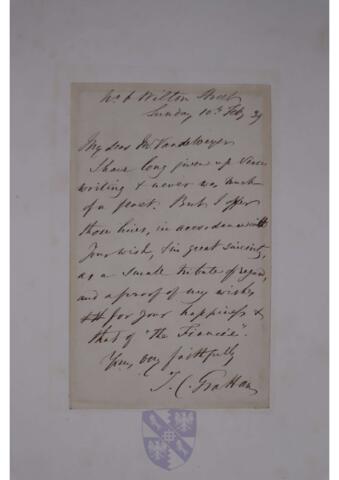 No 6 Wilton Street
Sunday 10th Feby 39
My dear Mr Van de Weyer
I have long given up Verse
writing & never was much
of a poet. But I offer
those lines, in accordance with
Your wish, in great sincerity,
as a small tribute of regard,
and a proof of my wishes
for your happiness &
that of "the Fiancée".
Yours very faithfully
T. C. Grattan